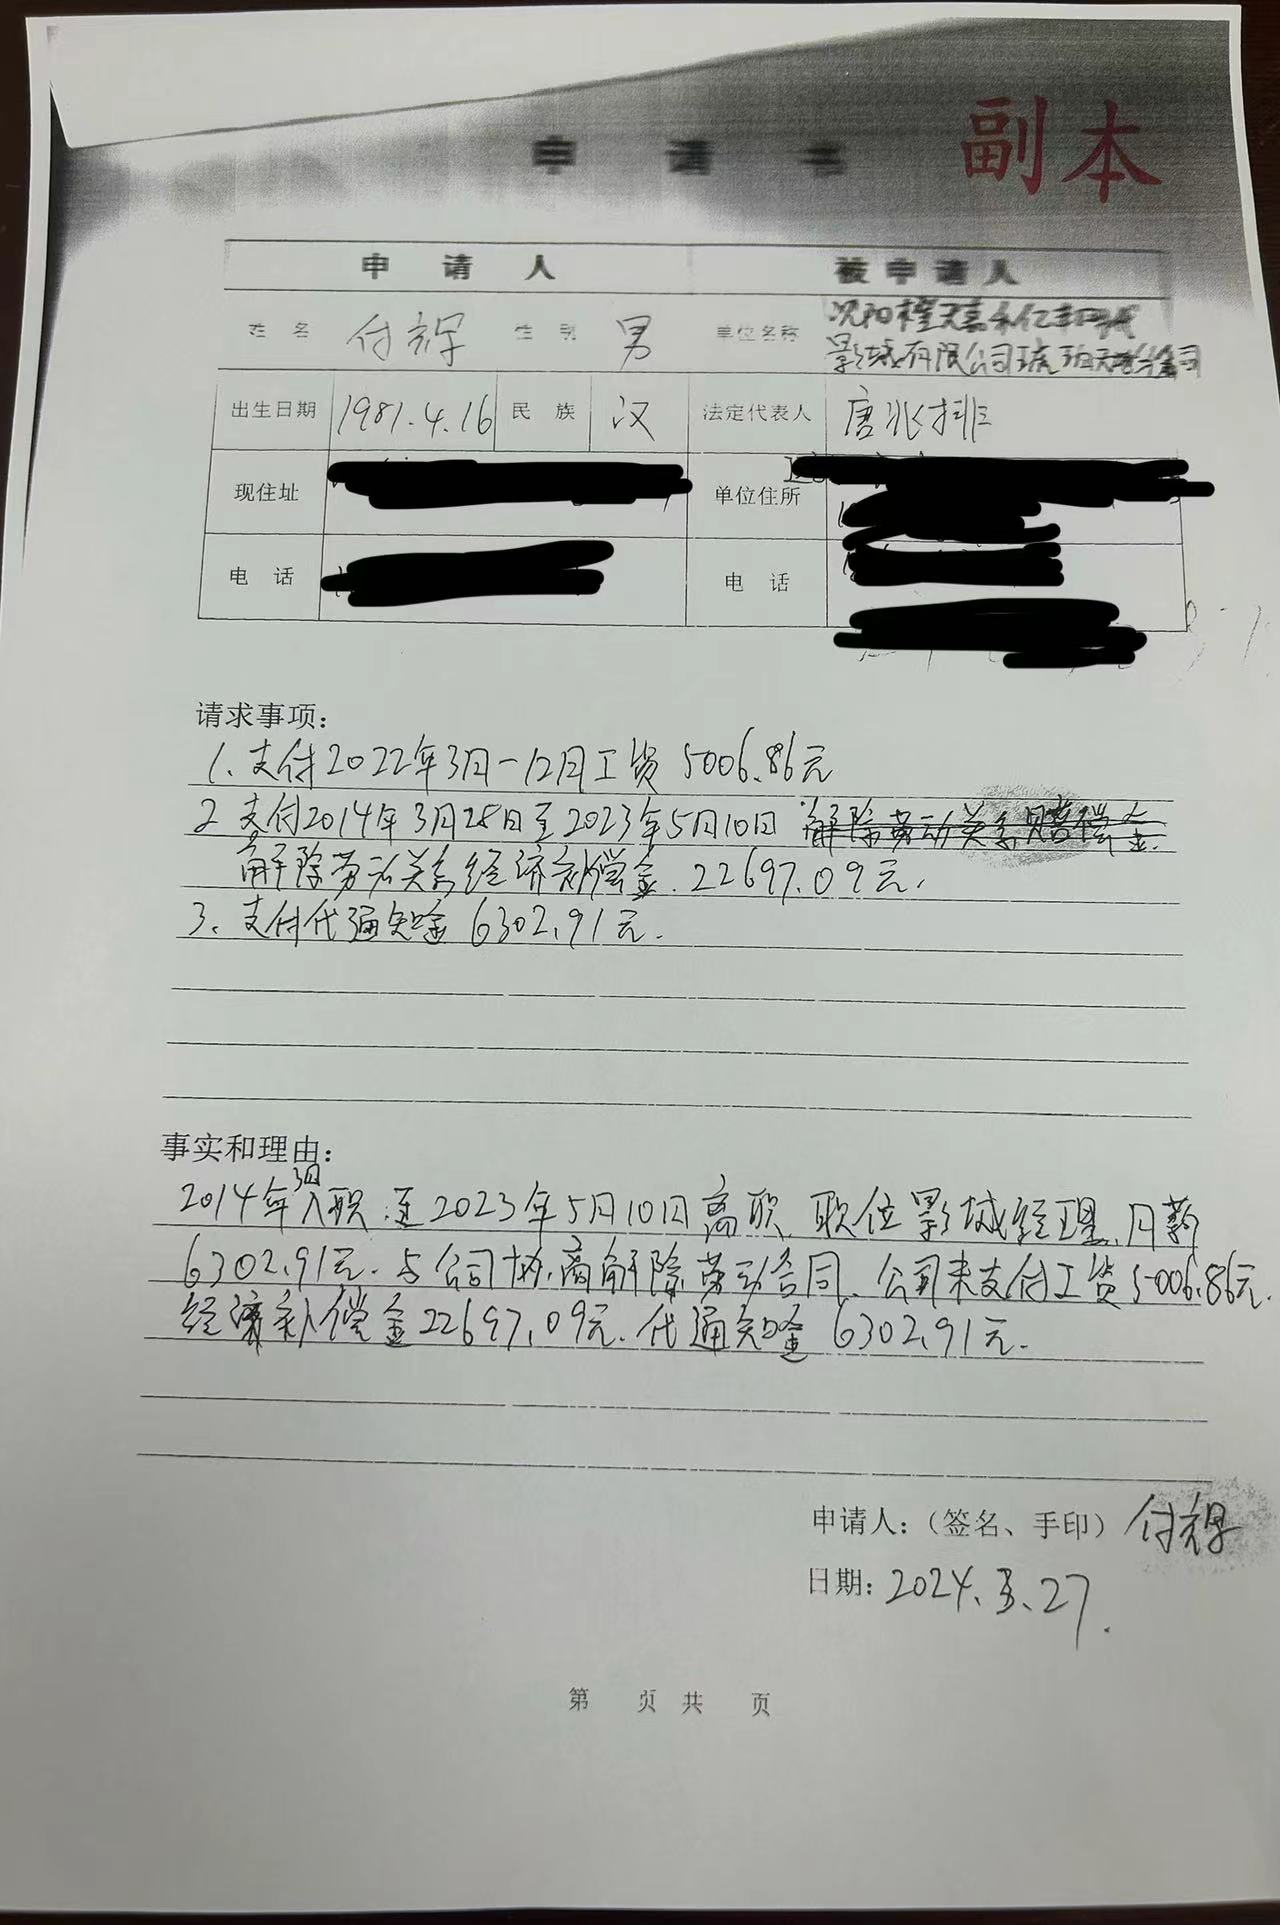 副本
申 请 书
申 请 人 被申请人
姓 名 付辉 性 别 男 单位名称 沈阳橙天嘉禾亿丰时代
影城有限公司琥珀天地分公司
出生日期 1981.4.16 民 族 汉 法定代表人 唐兆
现住址 单位住所
电 话 电 话
请求事项：
1、支付2022年3月-12月工资 5006.86元
2 支付2014年3月28日至2023年5月10日 解除劳动关系赔偿金
解除劳动关系经济补偿金.22697.09元.
3、支付代通知金 6302.91元.
事实和理由：
2014年3月入职.至2023年5月10日离职.职位影城经理.月薪
6302.91元.与公司协商解除劳动合同.公司未支付工资5006.86元.
经济补偿金22697.09元.代通知金 6302.91元.
申请人：（签名、手印） 付辉
日期：2024.3.27.
第 页 共 页